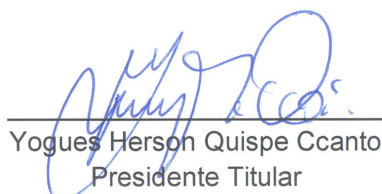 Yogues Herson Quispe Ccanto
Presidente Titular